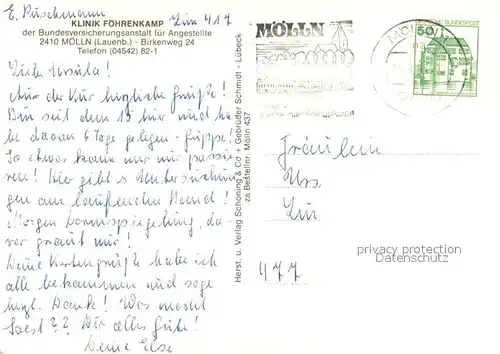 E. Puschmann Zim 417
KLINIK FÖHRENKAMP
der Bundesversicherungsanstalt für Angestellte
2410 MÖLLN (Lauenb.) - Birkenweg 24
Telefon (04542) 82-1
Liebe Ursula!
Aus der Kur herzliche Grüße!
Bin seit dem 15. hier und
be davon 6 Tage gelegen - Grippe!
So etwas kann nur mir passie
ren! Hier gibt s Untersuchun
gen am laufenden Band!
Morgen Darmspiegelung, da
vor graut mir!
Deine Kartengrüße habe ich
alle bekommen und sage
herzl. Danke! Was macht
Soest?? Dir alles Gute!
Deine Else
Herst. u. Verlag Schöning & Co + Gebrüder Schmidt - Lübeck
zu Bestellnr. Mölln 437
MÖLLN
MÖLLN
50
DEUTSCHE BUNDESPOST
Fräulein
Urs.
477
privacy protection
Datenschutz